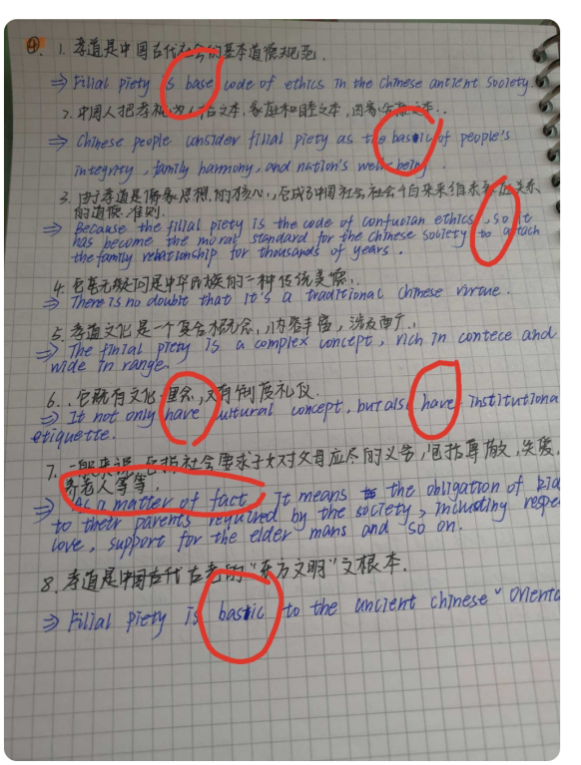 ④. 1. 孝道是中国古代社会的基本道德规范.
⇒ Filial piety is base code of ethics in the Chinese antient society.
2. 中国人把孝视为人格之本、家庭和睦之本、国家安康之本.
⇒ Chinese people consider filial piety as the basic of people's
integrity, family harmony, and nation's well-being
3. 由于孝道是儒家思想的核心,它成了中国社会 社会千百来来维系家庭关系
的道德准则.
⇒ Because the filial piety is the code of confucian ethics, so it
has become the moral standard for the Chinese society to attach
the family relationship for thousands of years.
4. 它毫无疑问是中华民族的一种传统美德.
⇒ There is no doubt that it's a traditional Chinese virtue.
5. 孝道文化是一个复合概念, 内容丰富, 涉及面广.
⇒ The finial piety is a complex concept, rich in contece and
wide in range.
6. 它既有文化理念,又有制度礼仪.
⇒ It not only have cultural concept, but also have institutiona
etiquette.
7. 一般来说,它指社会要求子女对父母应尽的义务,包括尊敬,关爱,
养老人等等.
⇒ As a matter of fact, It means the obligation of
to their parents required by the society, including respe
love, support for the elder mans and so on.
8. 孝道是中国古代古老的"东方文明"之根本.
⇒ Filial piety is basic to the ancient chinese "Orienta